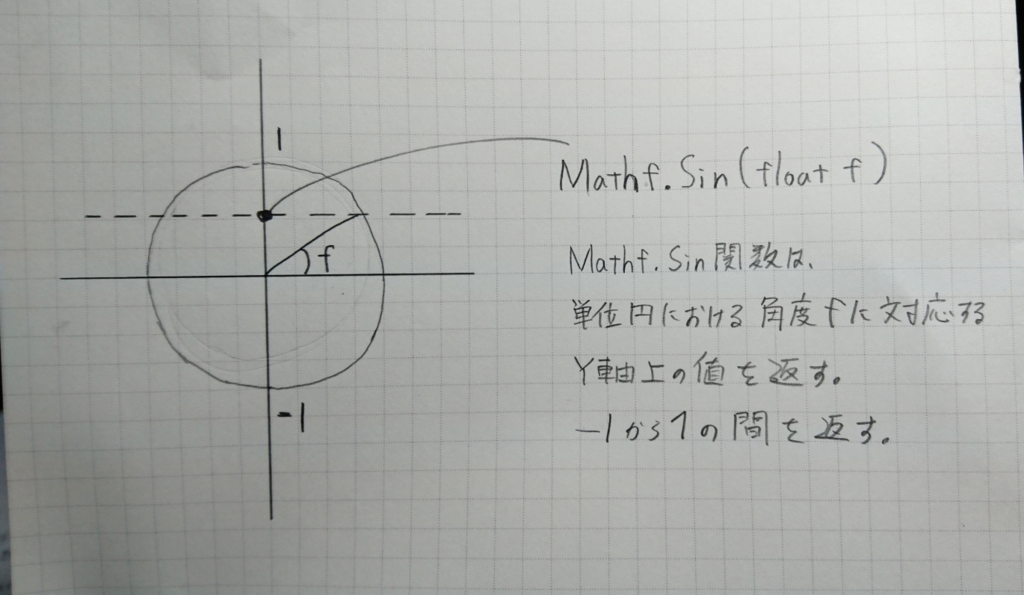 1
Mathf.Sin(float f)
f
Mathf.Sin関数は、
単位円における角度fに対応する
Y軸上の値を返す。
-1
-1から1の間を返す。